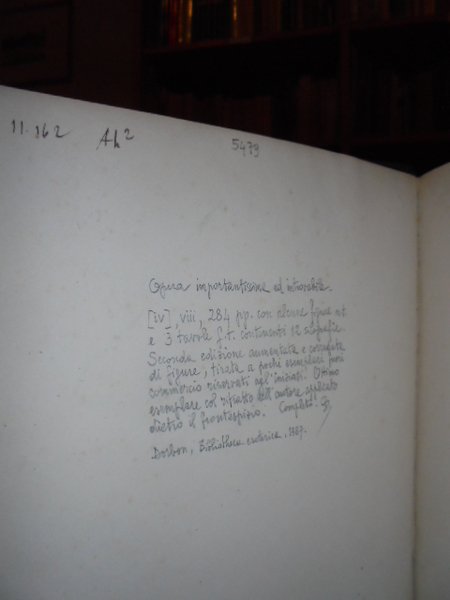 11.162 Ah² 5479
Opera importantissima ed introvabile.
[iv], viii, 284 pp. con alcune figure n.t.
e 3 tavole f.t. contenenti 12 silografie.
Seconda edizione aumentata e corredata
di figure, tirata a pochi esemplari fuori
commercio riservati agl'iniziati. Ottimo
esemplare col ritratto dell'autore applicato
dietro il frontespizio. Completo.
Dorbon, Bibliotheca esoterica,